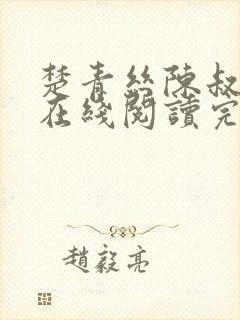 楚青絲陳叔
在綫閱讀完
趙毅亮